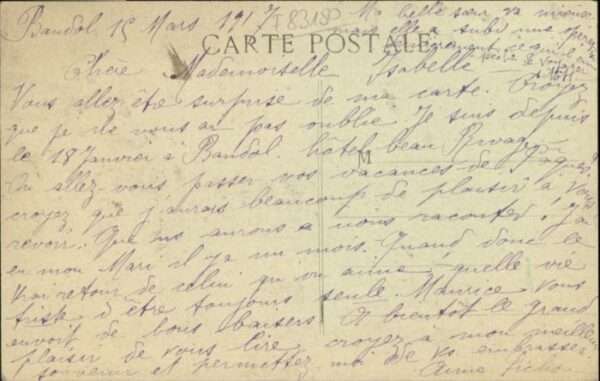 Bandol 15 Mars 1917
I 83180
Ma belle soeur va mieux
mais elle a subi une
CARTE POSTALE
Chère Mademoiselle Isabelle
Vous allez être surprise de ma carte. Croyez
que je ne vous ai pas oublié. Je suis depuis
le 18 Janvier à Bandol. hôtel beau Rivage
M
Ou allez-vous passer vos vacances de Pâques?
croyez que j'aurais beaucoup de plaisir à vous
revoir. Que ns aurons à nous raconter. J'ai
eu mon Mari il y a un mois. Quand donc le
Vrai retour de celui qu'on aime, quelle vie
triste d'être toujours seule. Maurice vous
envoit de bons baisers. A bientôt le grand
plaisir de vous lire croyez à mon meilleur
souvenir et permettez moi de vs embrasser